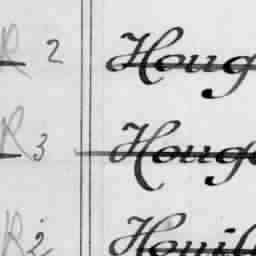 R 2 Houg
R 3 Houg
R 2 Houil